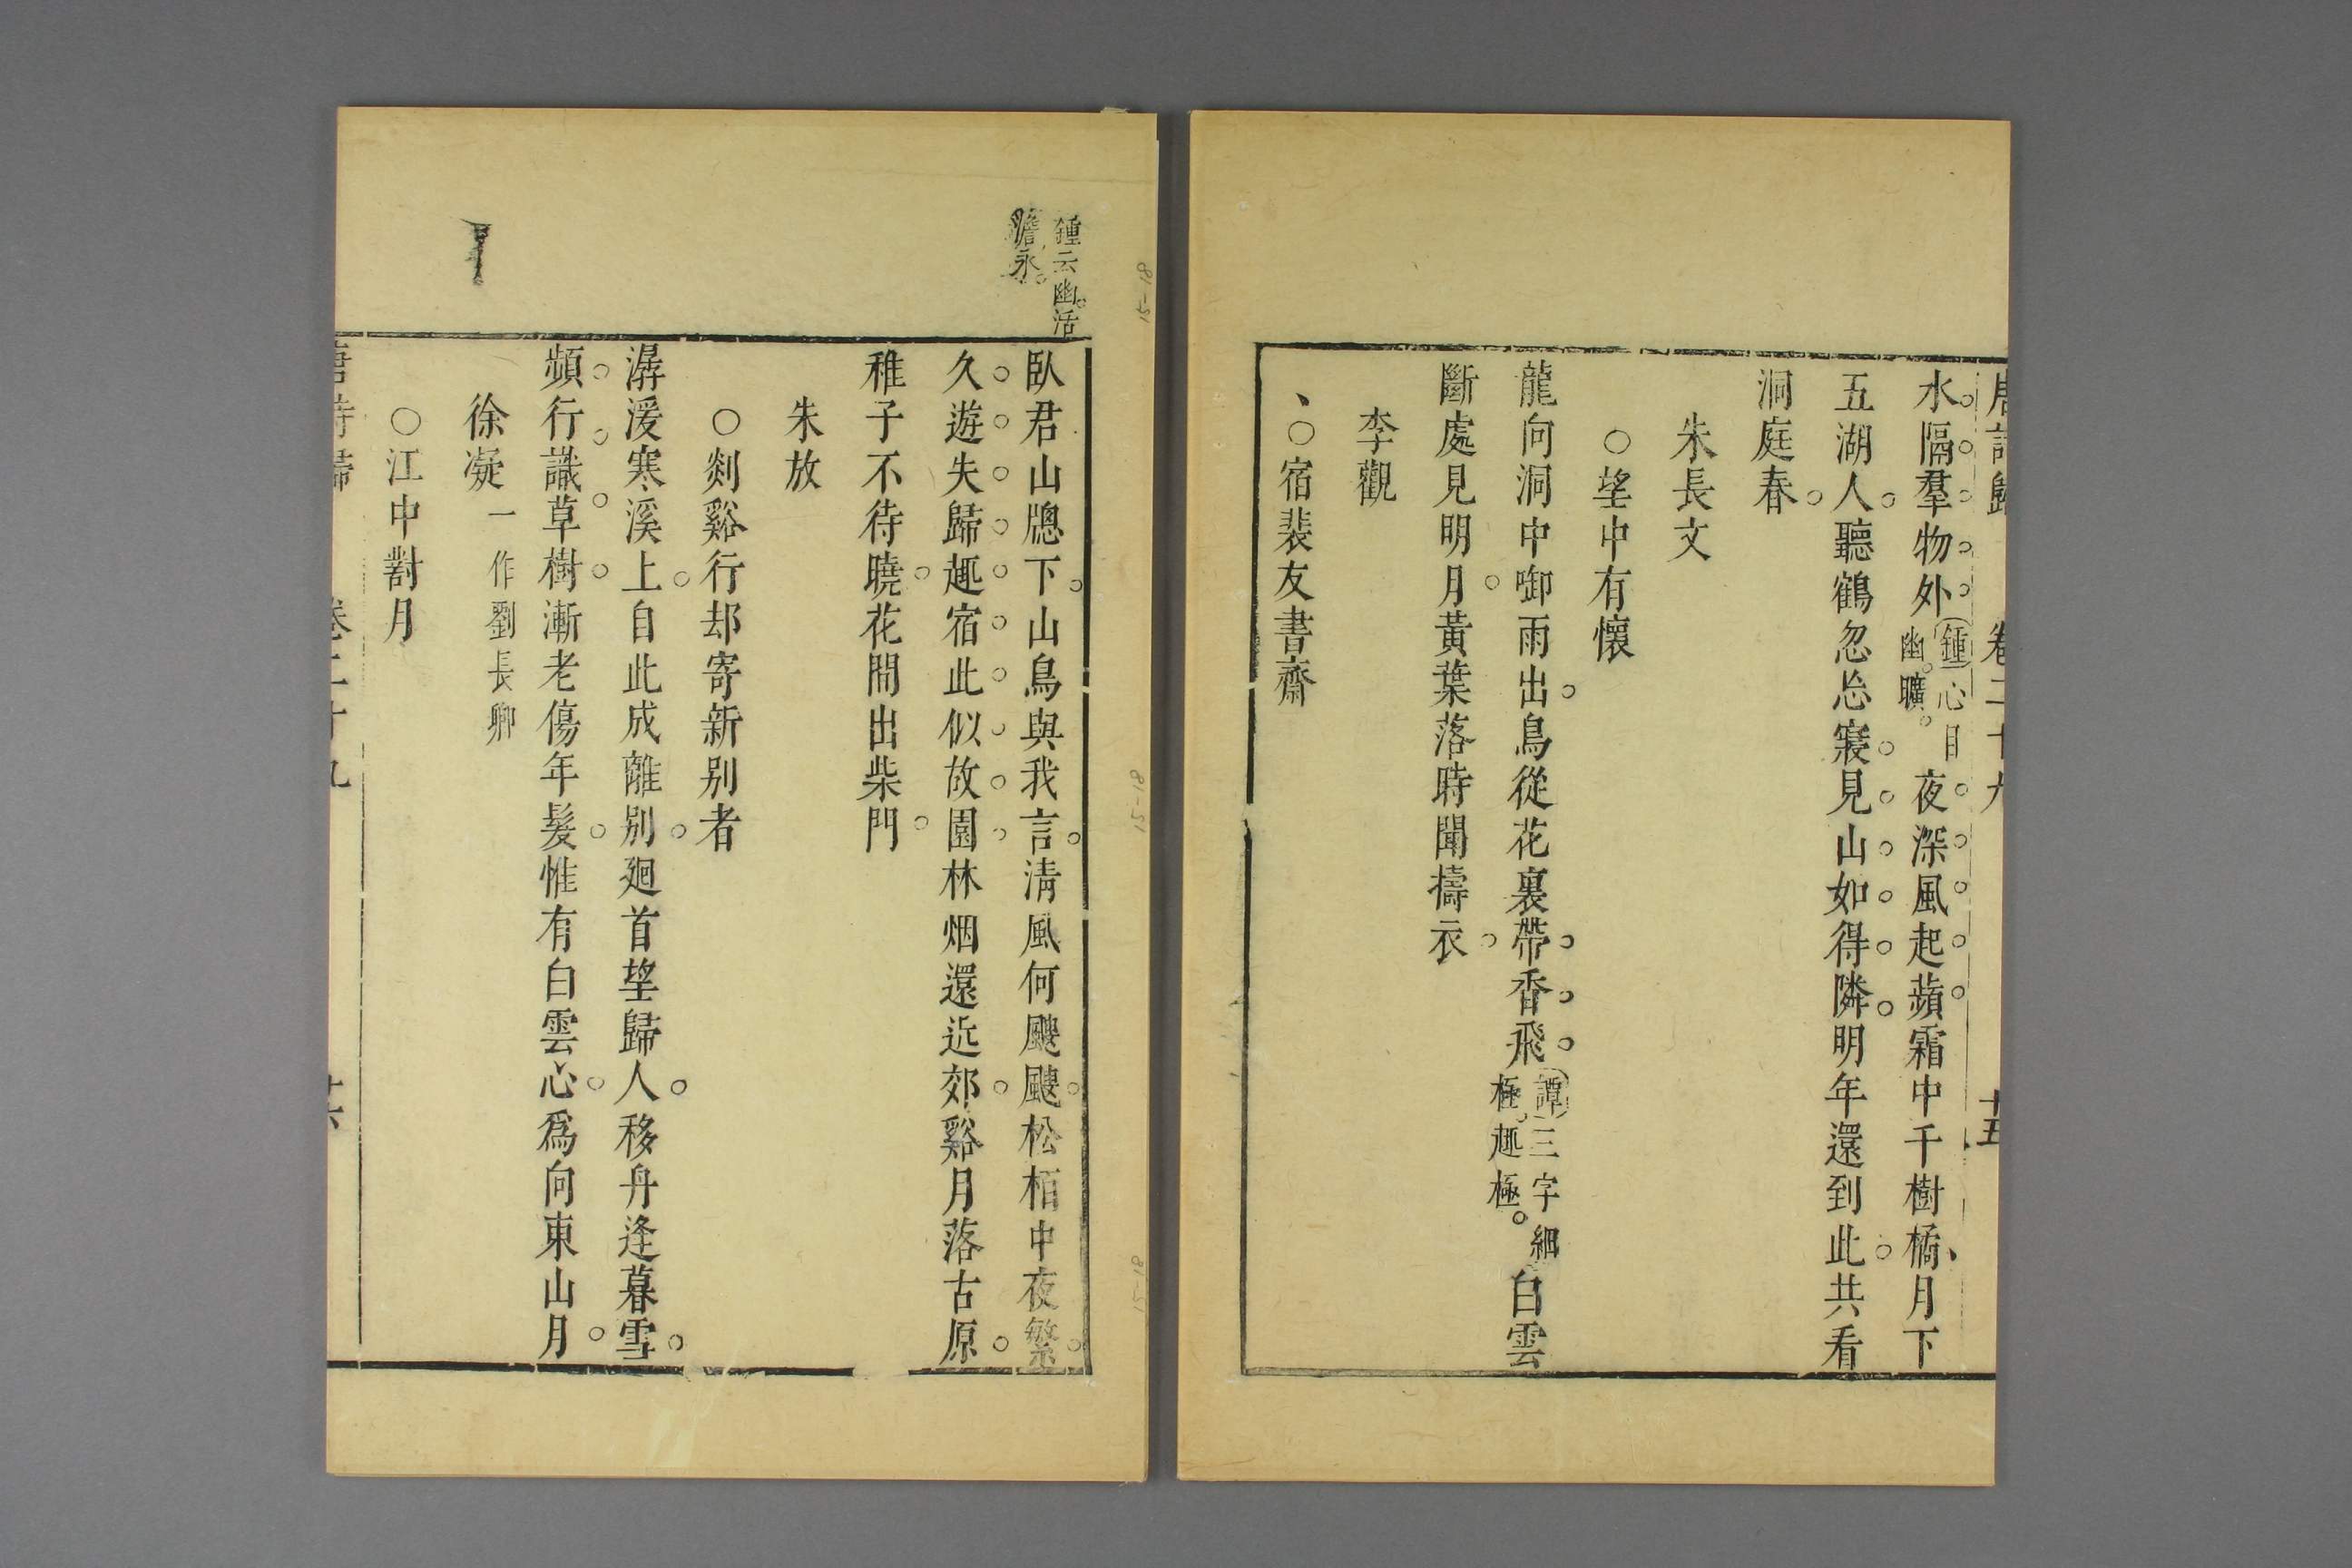 唐詩歸 卷二十九 十五
水隔羣物外鍾心目幽曠夜深風起蘋霜中千樹橘月下
五湖人聽鶴忽忘寢見山如得隣明年還到此共看
洞庭春
朱長文
○望中有懷
龍向洞中啣雨出鳥從花裏帶香飛譚三字細極趣極白雲
斷處見明月黃葉落時聞擣衣
李觀
、○宿裴友書齋
鍾云幽活
澹永
臥君山牕下山鳥與我言清風何颼颼松栢中夜繁
久遊失歸趣宿此似故園林烟還近郊谿月落古原
稚子不待曉花間出柴門
朱放
○剡谿行却寄新別者
潺湲寒溪上自此成離別廻首望歸人移舟逢暮雪
頻行識草樹漸老傷年髮惟有白雲心爲向東山月
徐凝一作劉長卿
○江中對月
唐詩歸 卷二十九 十六
15-18
15-18
15-18